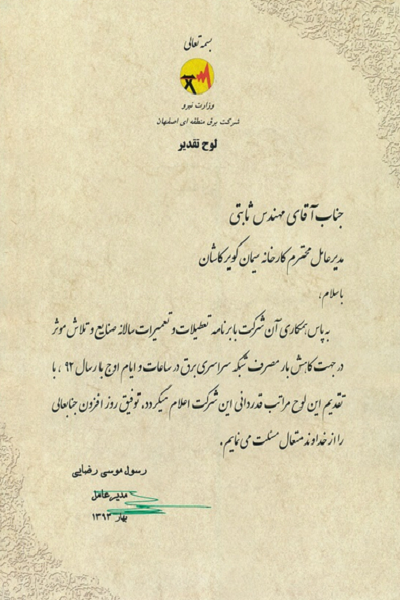 بسمه تعالی
وزارت نیرو
شرکت برق منطقه ای اصفهان
لوح تقدیر
جناب آقای مهندس ثابتی
مدیرعامل محترم کارخانه سیمان کویر کاشان
باسلام،
به پاس همکاری آن شرکت با برنامه تعطیلات و تعمیرات سالانه صنایع و تلاش موثر
در جهت کاهش بار مصرف شبکه سراسری برق در ساعات و ایام اوج بار سال ۹۲ ، با
تقدیم این لوح مراتب قدردانی این شرکت اعلام میگردد، توفیق روز افزون جنابعالی
را از خداوند متعال مسئلت می نمایم.
رسول موسی رضایی
مدیرعامل
بهار ۱۳۹۳